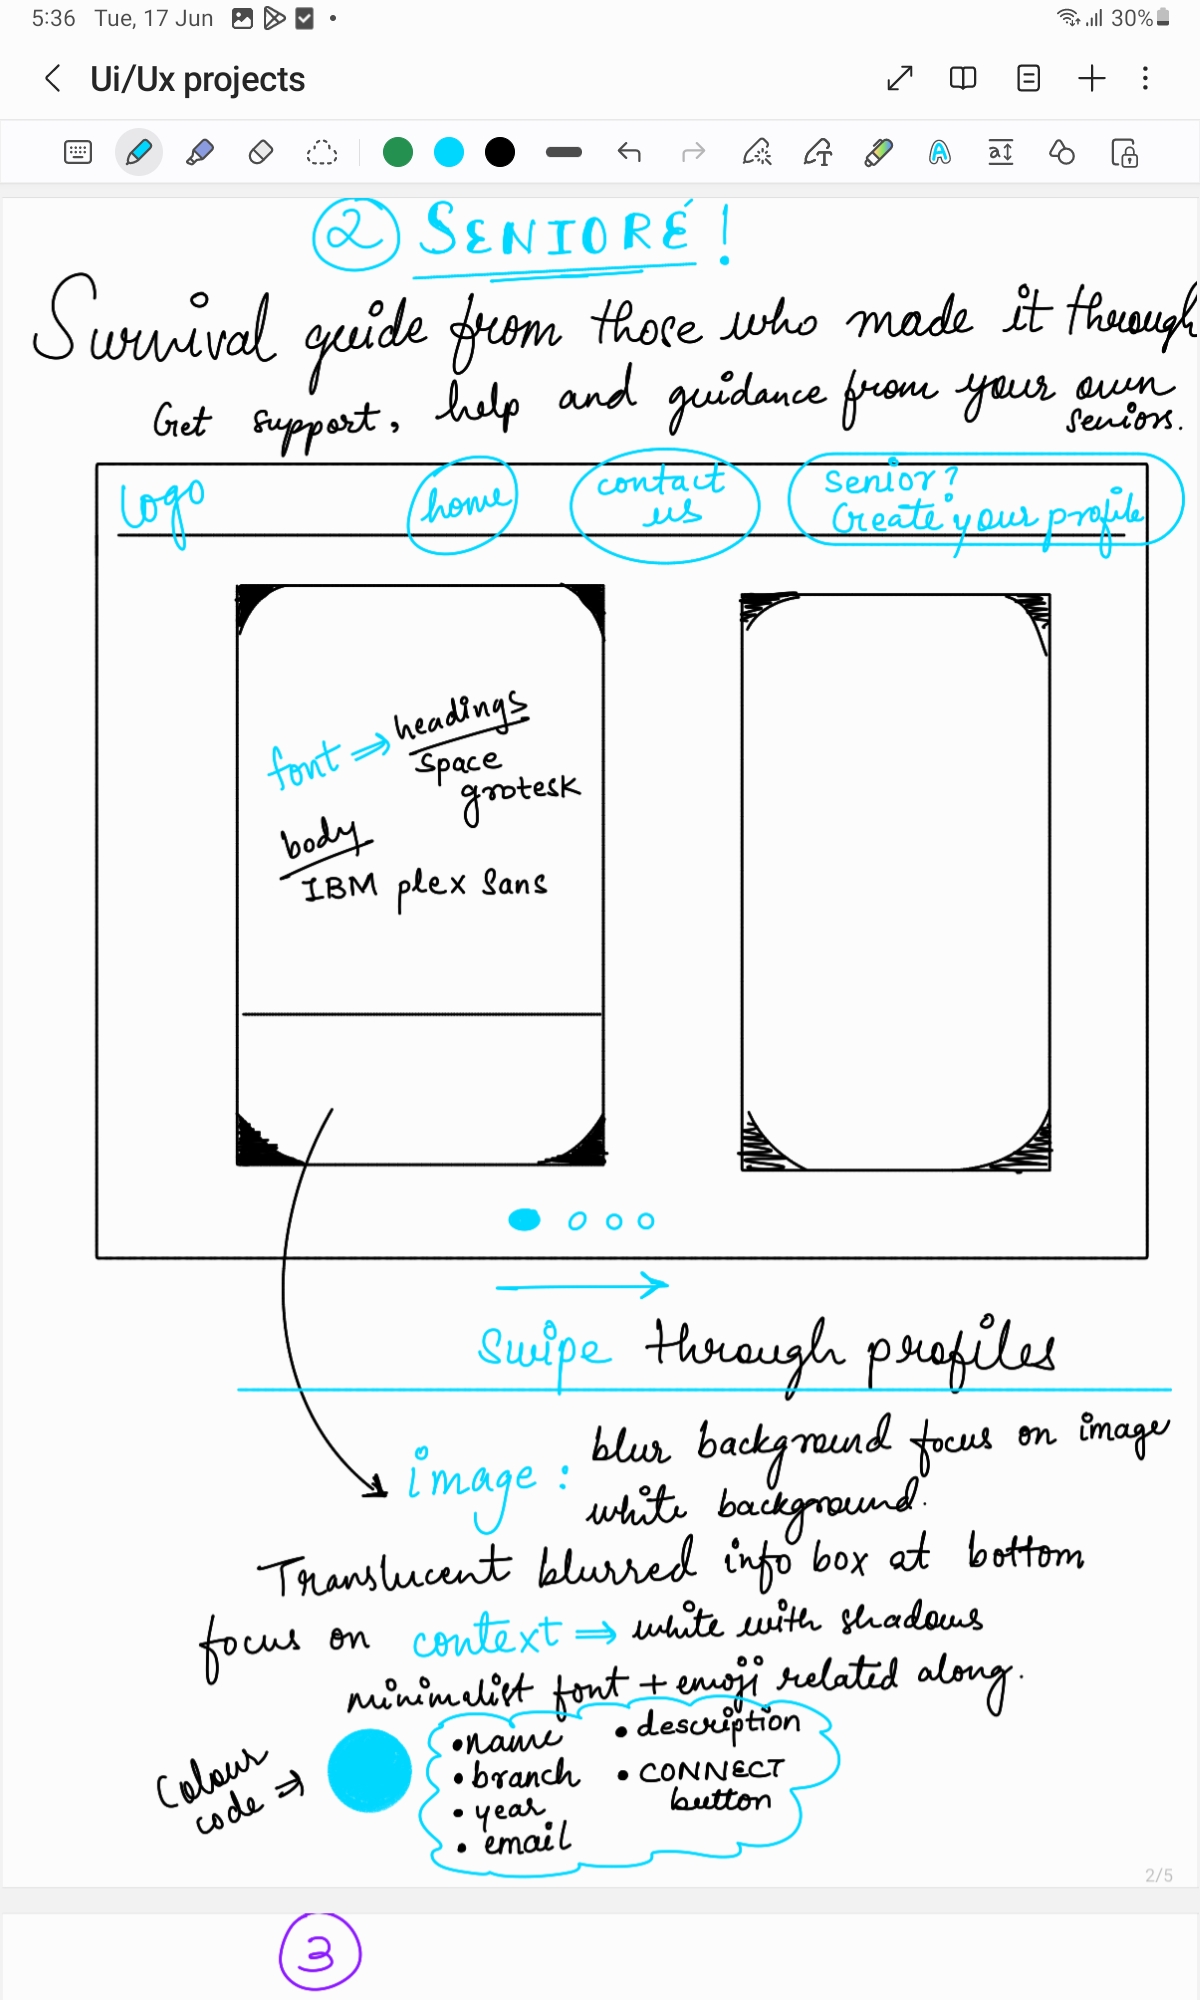 5:36 Tue, 17 Jun 30%
Ui/Ux projects
② SENIORÉ!
Survival guide from those who made it through
Get support, help and guidance from your own
seniors.
logo
home
contact
us
Senior?
Create your profile
font ⇒ headings
space
grotesk
body
IBM plex Sans
swipe through profiles
image : blur background focus on image
white background.
Translucent blurred info box at bottom
focus on context ⇒ white with shadows
minimalist font + emoji related along.
Colour
code ⇒
• name
• branch
• year
• email
• description
• CONNECT
button
2/5
3